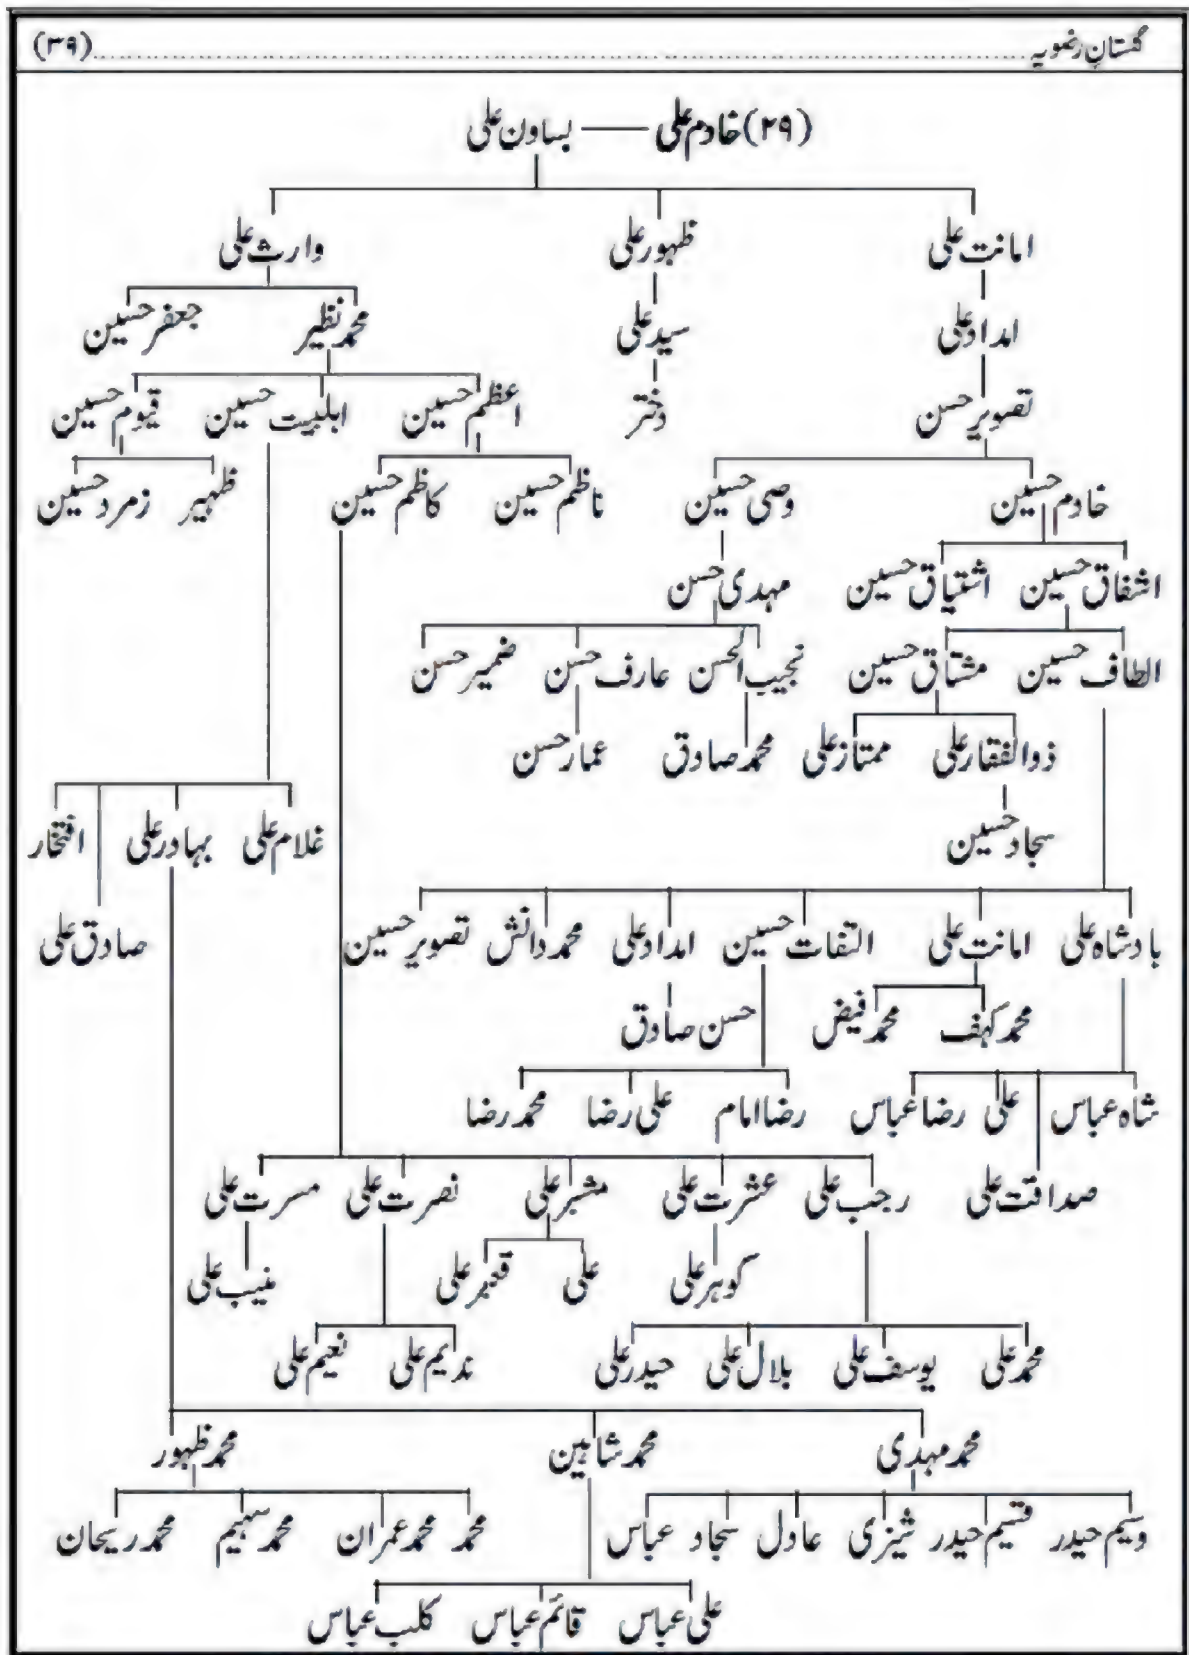 گلستانِ رضویہ (۳۹)
(۲۹) خادم علی بساون علی
امانت علی ظہور علی وارث علی
امداد علی سید علی محمد نظیر جعفر حسین
تصویر حسن دختر اعظم حسین اہلبیت حسین قیوم حسین
خادم حسین وصی حسین ناظم حسین کاظم حسین ظہیر زمرد حسین
اشفاق حسین اشتیاق حسین مہدی حسن
الطاف حسین مشتاق حسین نجیب الحسن عارف حسن ضمیر حسن
ذوالفقار علی ممتاز علی محمد صادق عمار حسن
سجاد حسین غلام علی بہادر علی افتخار
بادشاہ علی امانت علی التفات حسین امداد علی محمد دانش تصویر حسین صادق علی
محمد کہف محمد فیض حسن صادق
شاہ عباس علی رضا عباس رضا امام علی رضا محمد رضا
صداقت علی رجب علی عشرت علی مشبر علی نصرت علی مسرت علی
گوہر علی علی قنبر علی منیب علی
محمد علی یوسف علی بلال علی حیدر علی ندیم علی نعیم علی
محمد مہدی محمد شاہین محمد ظہور
وسیم حیدر قسیم حیدر شیزی عادل سجاد عباس محمد محمد عمران محمد سہیم محمد ریحان
علی عباس قائم عباس کلب عباس